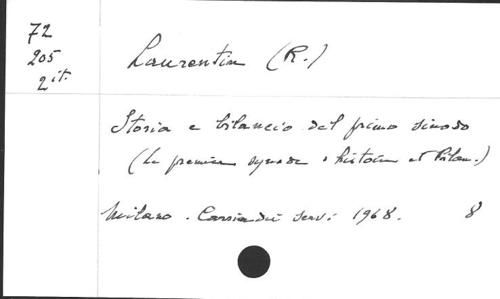 72
205
2 it.
Laurentin (R.)
Storia e bilancio del primo sinodo
(Le premier synode, histoire et bilan.)
Milano. Corsia dei servi 1968. 8